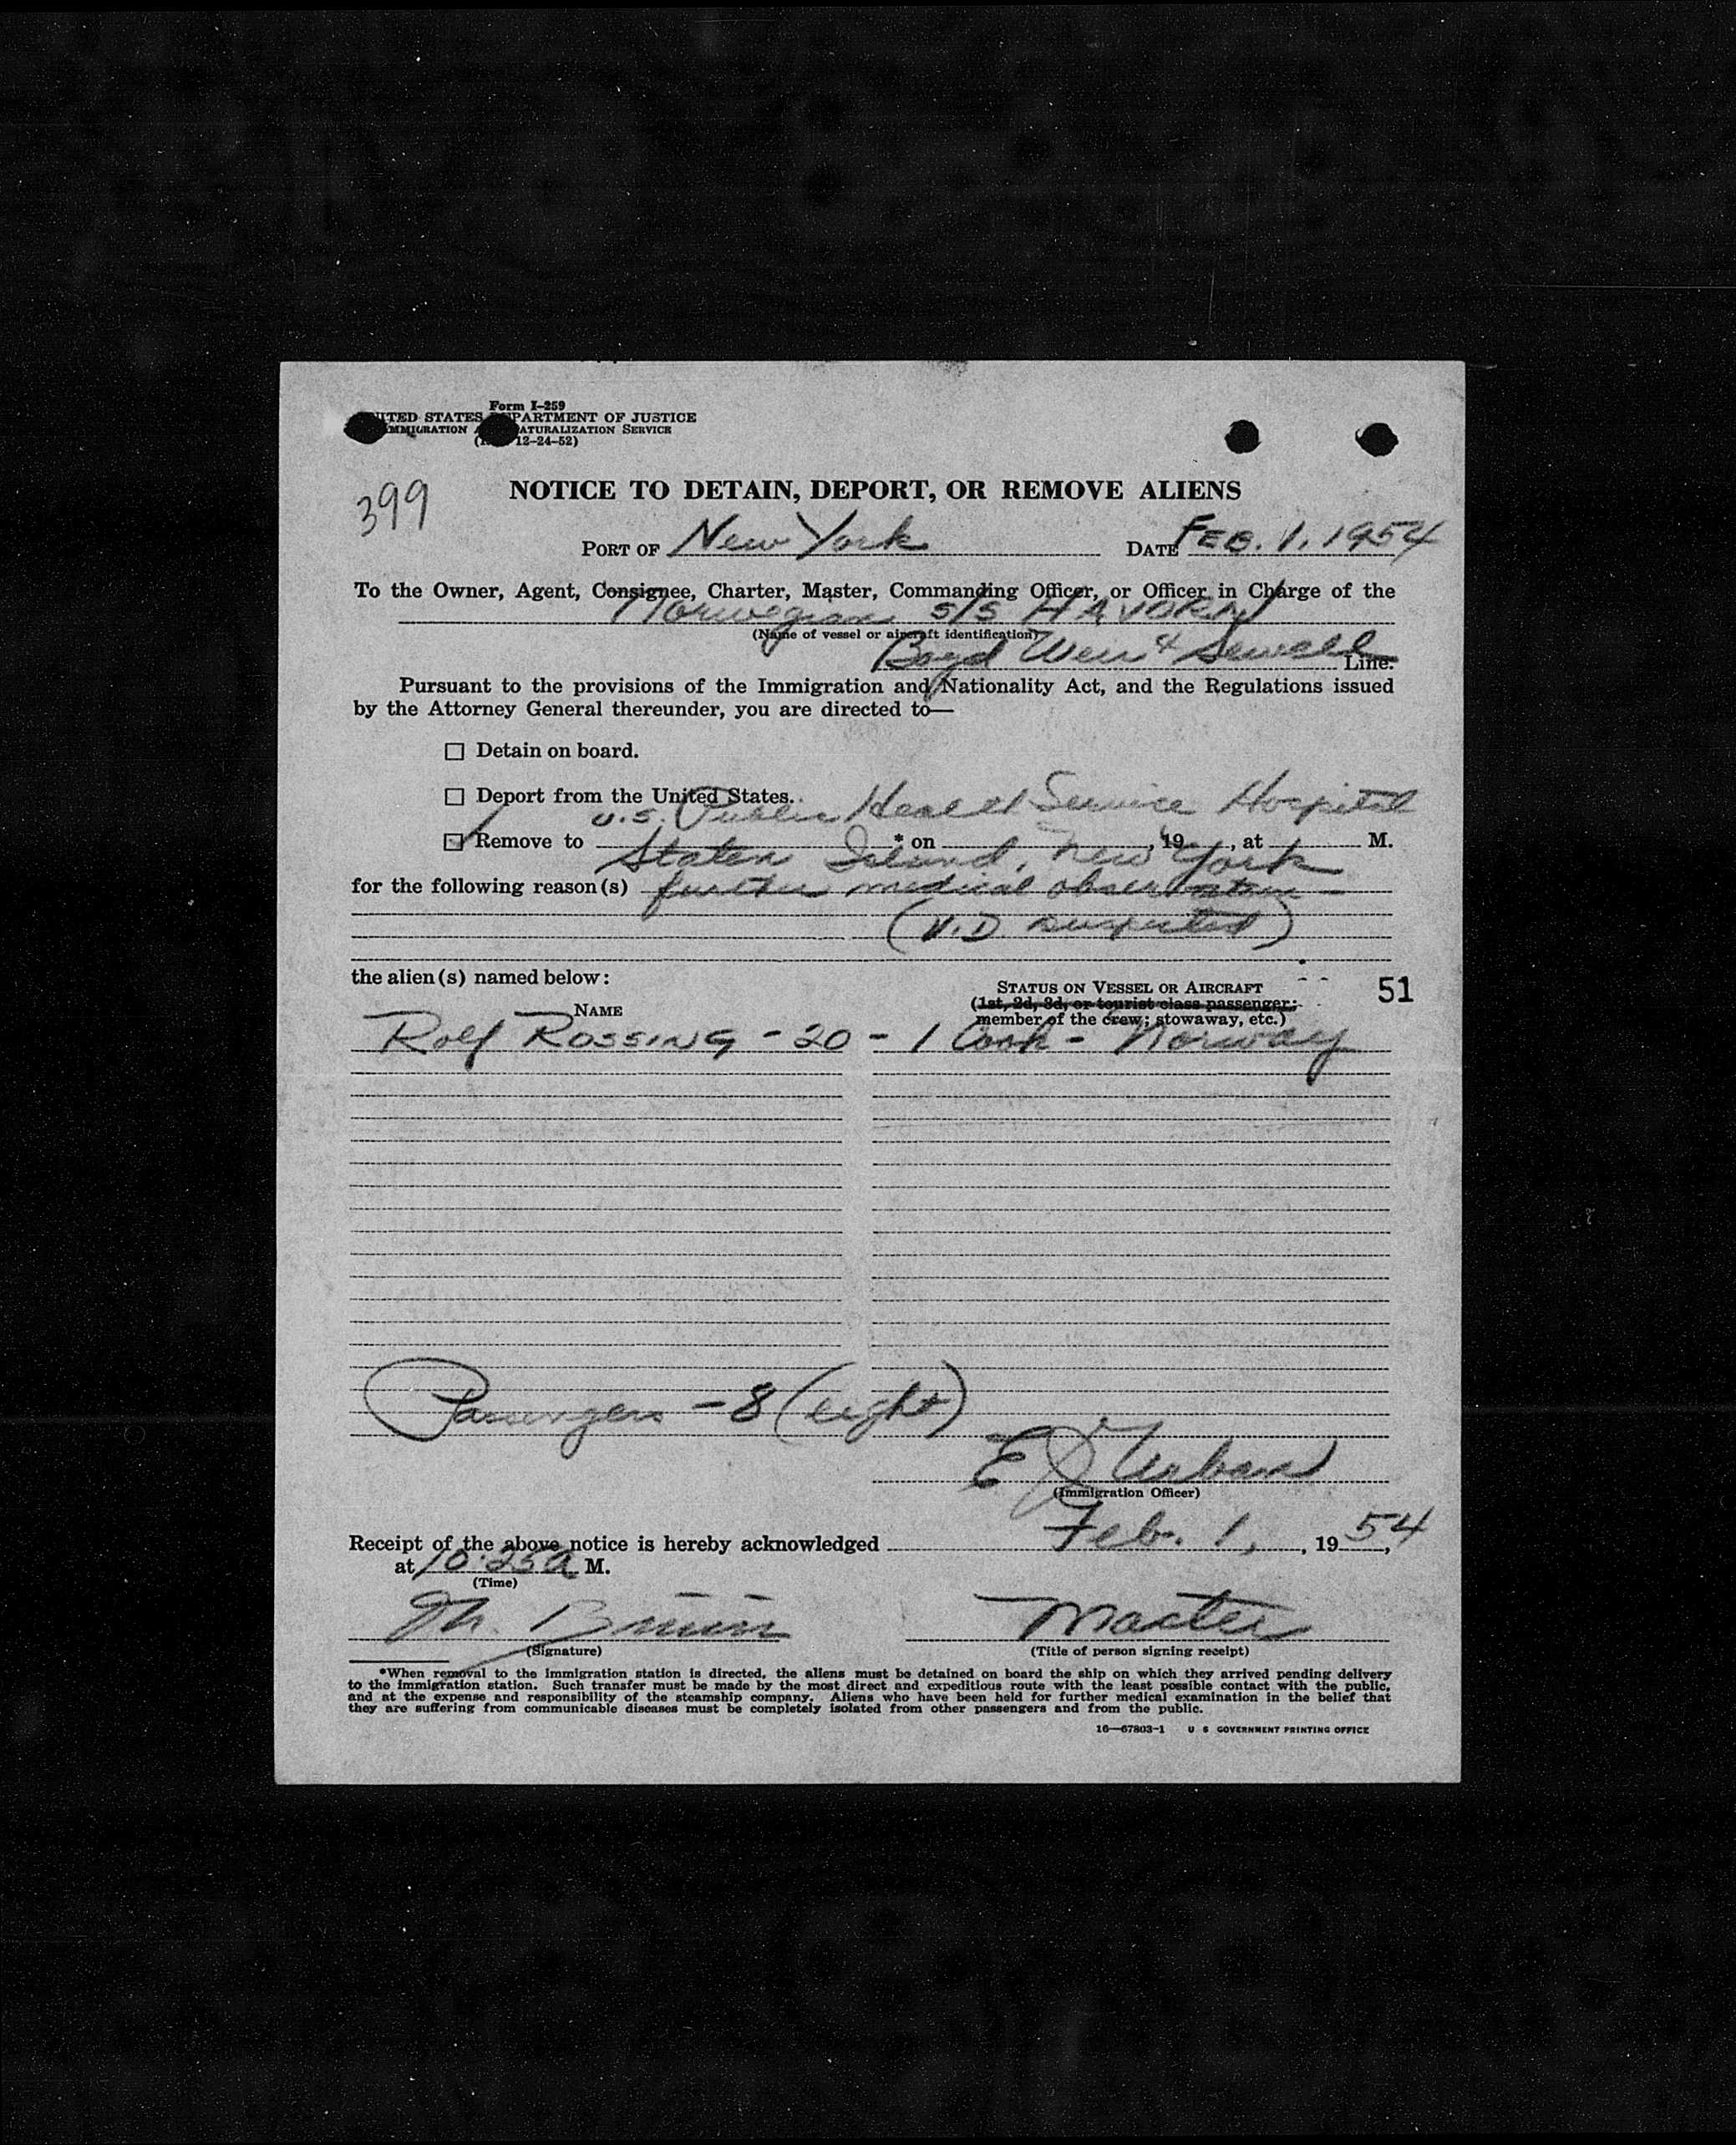 Form I-259
UNITED STATES DEPARTMENT OF JUSTICE
IMMIGRATION AND NATURALIZATION SERVICE
12-24-52)
399
NOTICE TO DETAIN, DEPORT, OR REMOVE ALIENS
PORT OF New York DATE FEB. 1, 1954
To the Owner, Agent, Consignee, Charter, Master, Commanding Officer, or Officer in Charge of the
Norwegian s/s HAVORN
(Name of vessel or aircraft identification)
Boyd Weir & Sewell Line.
Pursuant to the provisions of the Immigration and Nationality Act, and the Regulations issued
by the Attorney General thereunder, you are directed to—
☐ Detain on board.
☐ Deport from the United States.
U.S. Public Health Service Hospital
☑ Remove to * on , 19 , at M.
Staten Island, New York
for the following reason(s) further medical observation
(V.D. suspected)
the alien(s) named below:
STATUS ON VESSEL OR AIRCRAFT
51
NAME
(1st, 2d, 3d, or tourist class passenger;
member of the crew; stowaway, etc.)
Rolf ROSSING - 20 - 1 Cook - Norway
Passengers - 8 (eight)
E J Urban
(Immigration Officer)
Receipt of the above notice is hereby acknowledged Feb. 1, , 1954,
at 10:25a M.
(Time)
Th. Master
(Signature) (Title of person signing receipt)
*When removal to the immigration station is directed, the aliens must be detained on board the ship on which they arrived pending delivery
to the immigration station. Such transfer must be made by the most direct and expeditious route with the least possible contact with the public,
and at the expense and responsibility of the steamship company. Aliens who have been held for further medical examination in the belief that
they are suffering from communicable diseases must be completely isolated from other passengers and from the public.
16—67803-1 U S GOVERNMENT PRINTING OFFICE